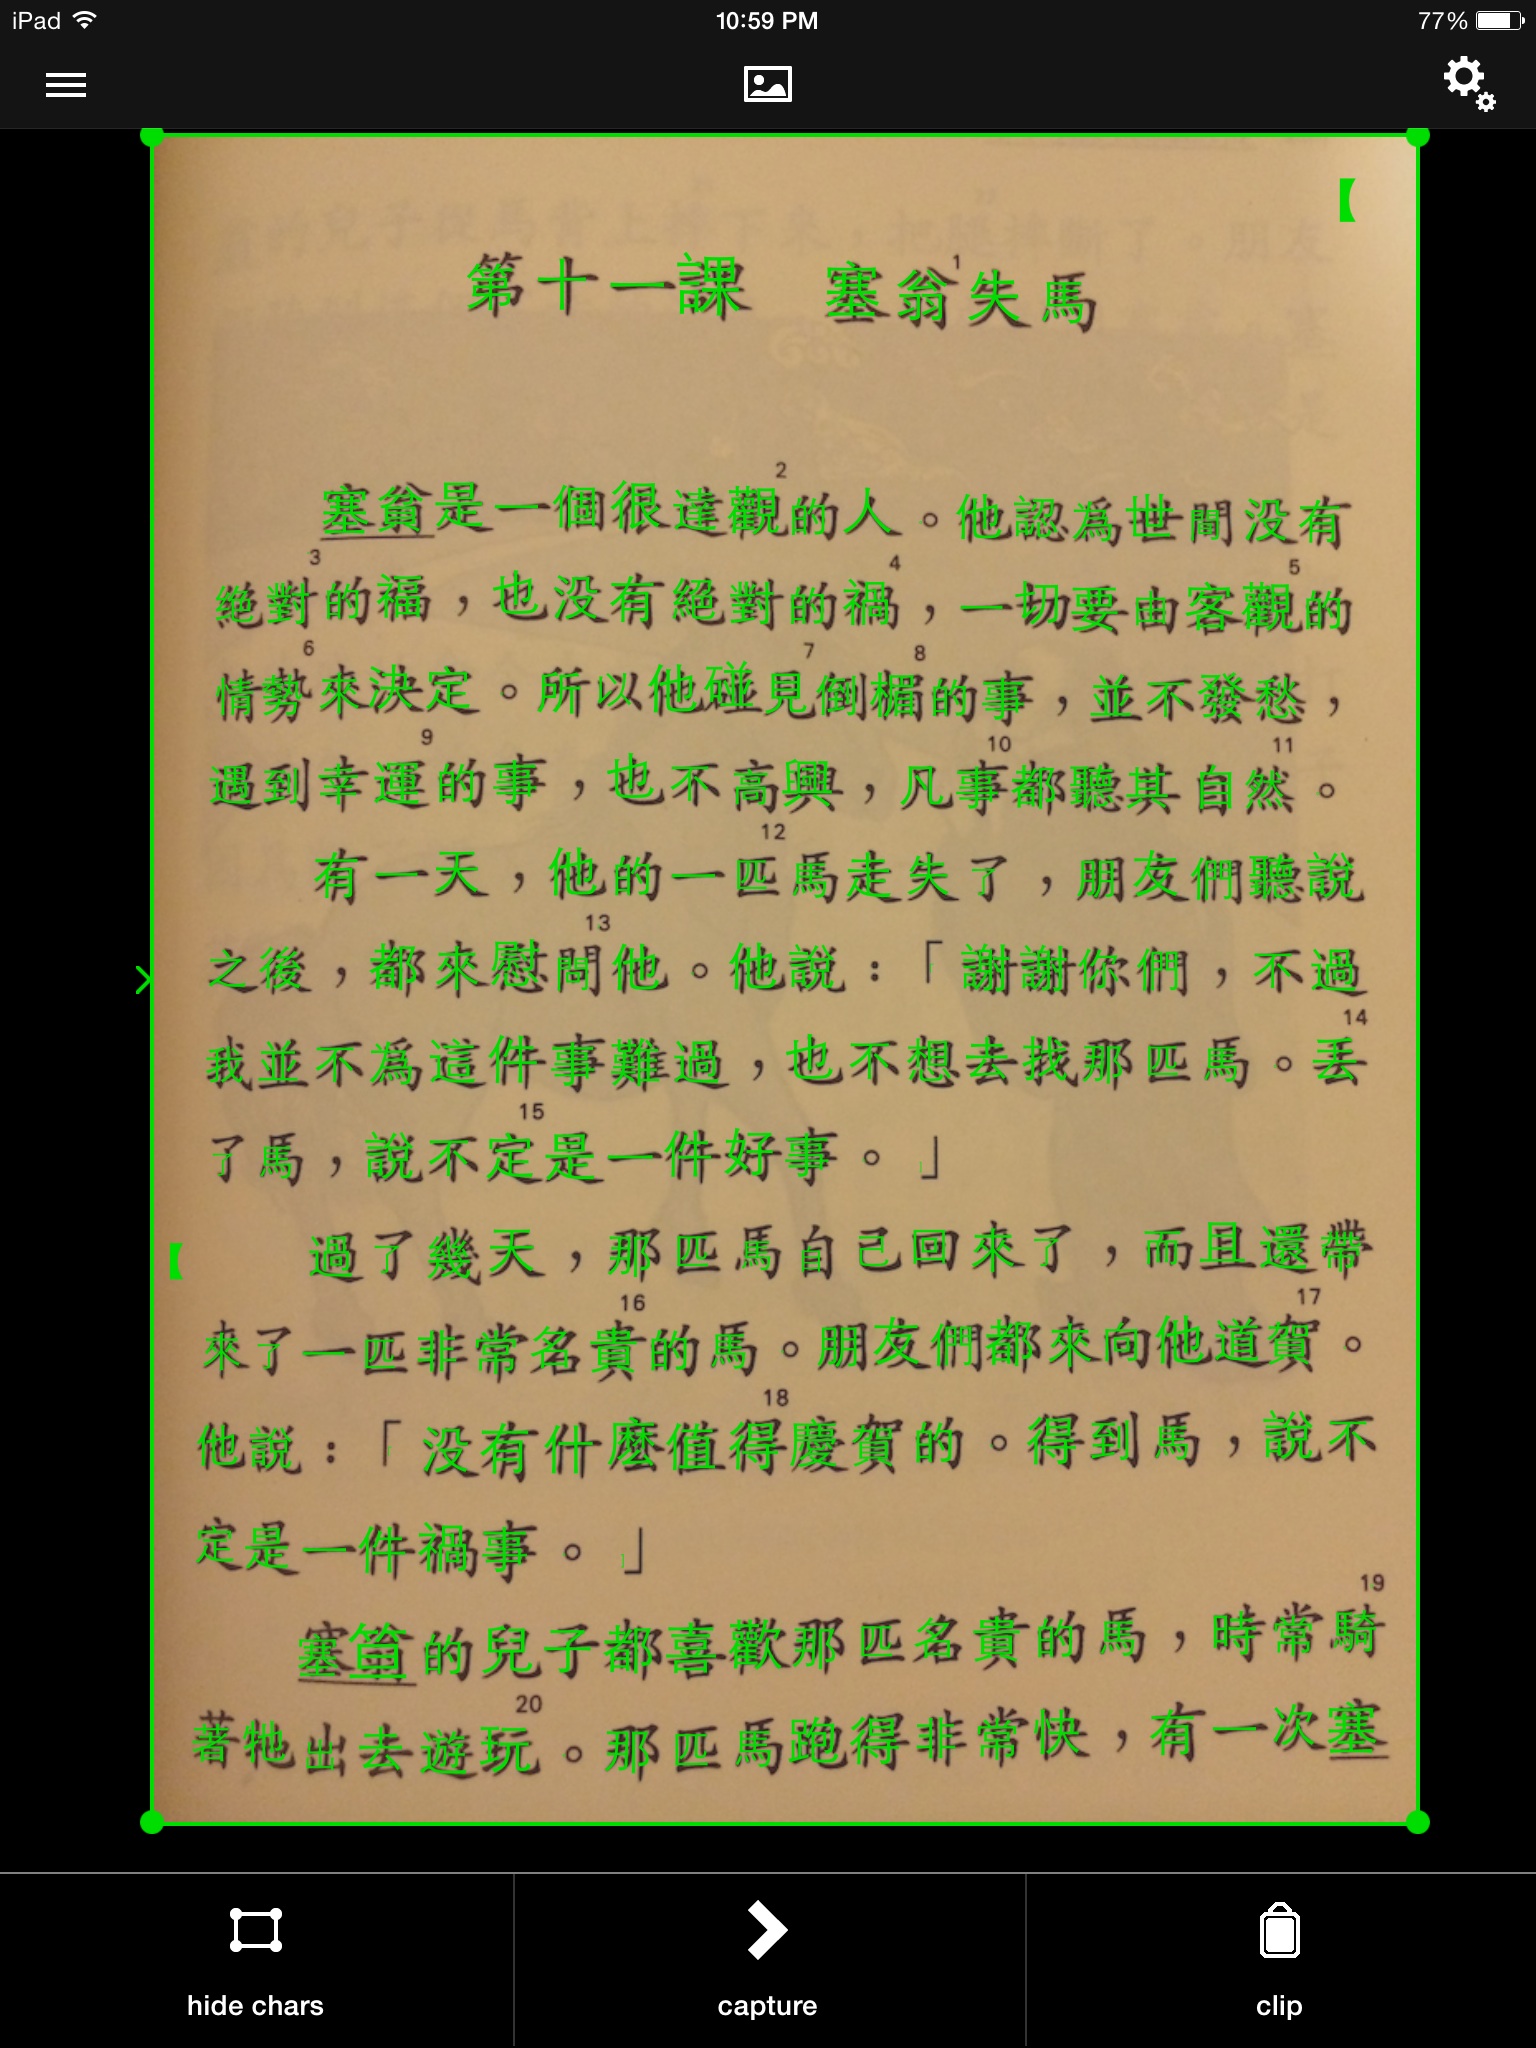 iPad 10:59 PM 77%
第十一課 塞翁1失馬
塞翁是一個很達觀2的人。他認為世間没有
絶3對的福,也没有絕對的禍4,一切要由客觀5的
情勢6來決定。所以他碰7見倒楣8的事,並不發愁,
遇到幸運9的事,也不高興,凡事10都聽其自然11。
有一天,他的一匹12馬走失了,朋友們聽說
之後,都來慰問13他。他說:「謝謝你們,不過
我並不為這件事難過,也不想去找那匹馬。丟14
了馬,說不定15是一件好事。」
過了幾天,那匹馬自己回來了,而且還帶
來了一匹非常名貴16的馬。朋友們都來向他道賀17。
他說:「没有什麼值得18慶賀的。得到馬,說不
定是一件禍事。」
塞翁的兒子都喜歡那匹名貴的馬,時常騎19
著牠出去遊玩20。那匹馬跑得非常快,有一次塞
hide chars capture clip